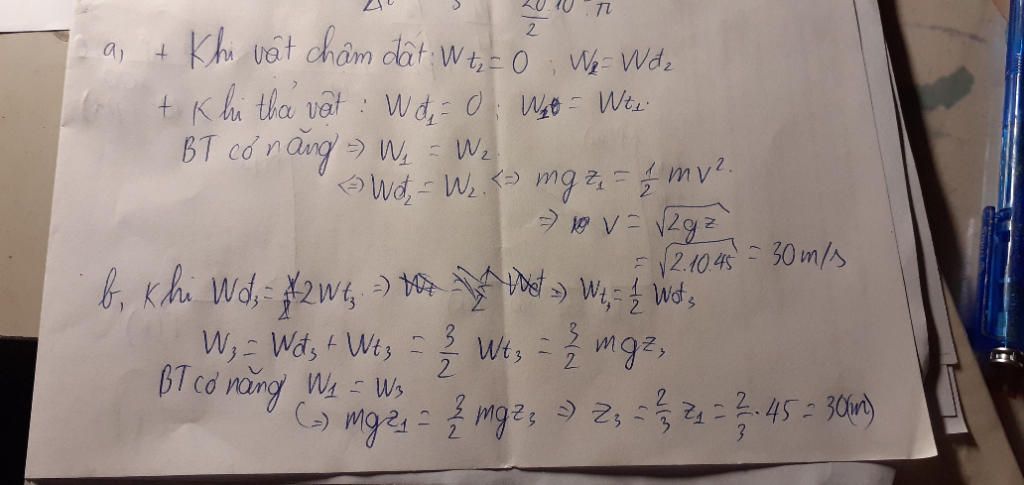 20/2 · 10 π
a, + Khi vật chậm đất: Wt₂ = 0 ; W₂ = Wđ₂
+ Khi thả vật : Wđ₁ = 0 ; W₁ = Wt₁.
BT cơ năng ⇒ W₁ = W₂
⇔ Wđ₂ = W₂. ⇔ mgz₁ = 1/2 mv².
⇒ v = √2gz
= √2.10.45 = 30 m/s
b, Khi Wđ₃ = 2Wt₃. ⇒ Wt₃ = 1/2 Wđ₃
W₃ = Wđ₃ + Wt₃ = 3/2 Wt₃ = 3/2 mgz₃
BT cơ năng W₁ = W₃
(⇒) mgz₁ = 3/2 mgz₃ ⇒ z₃ = 2/3 z₁ = 2/3 · 45 = 30(m)